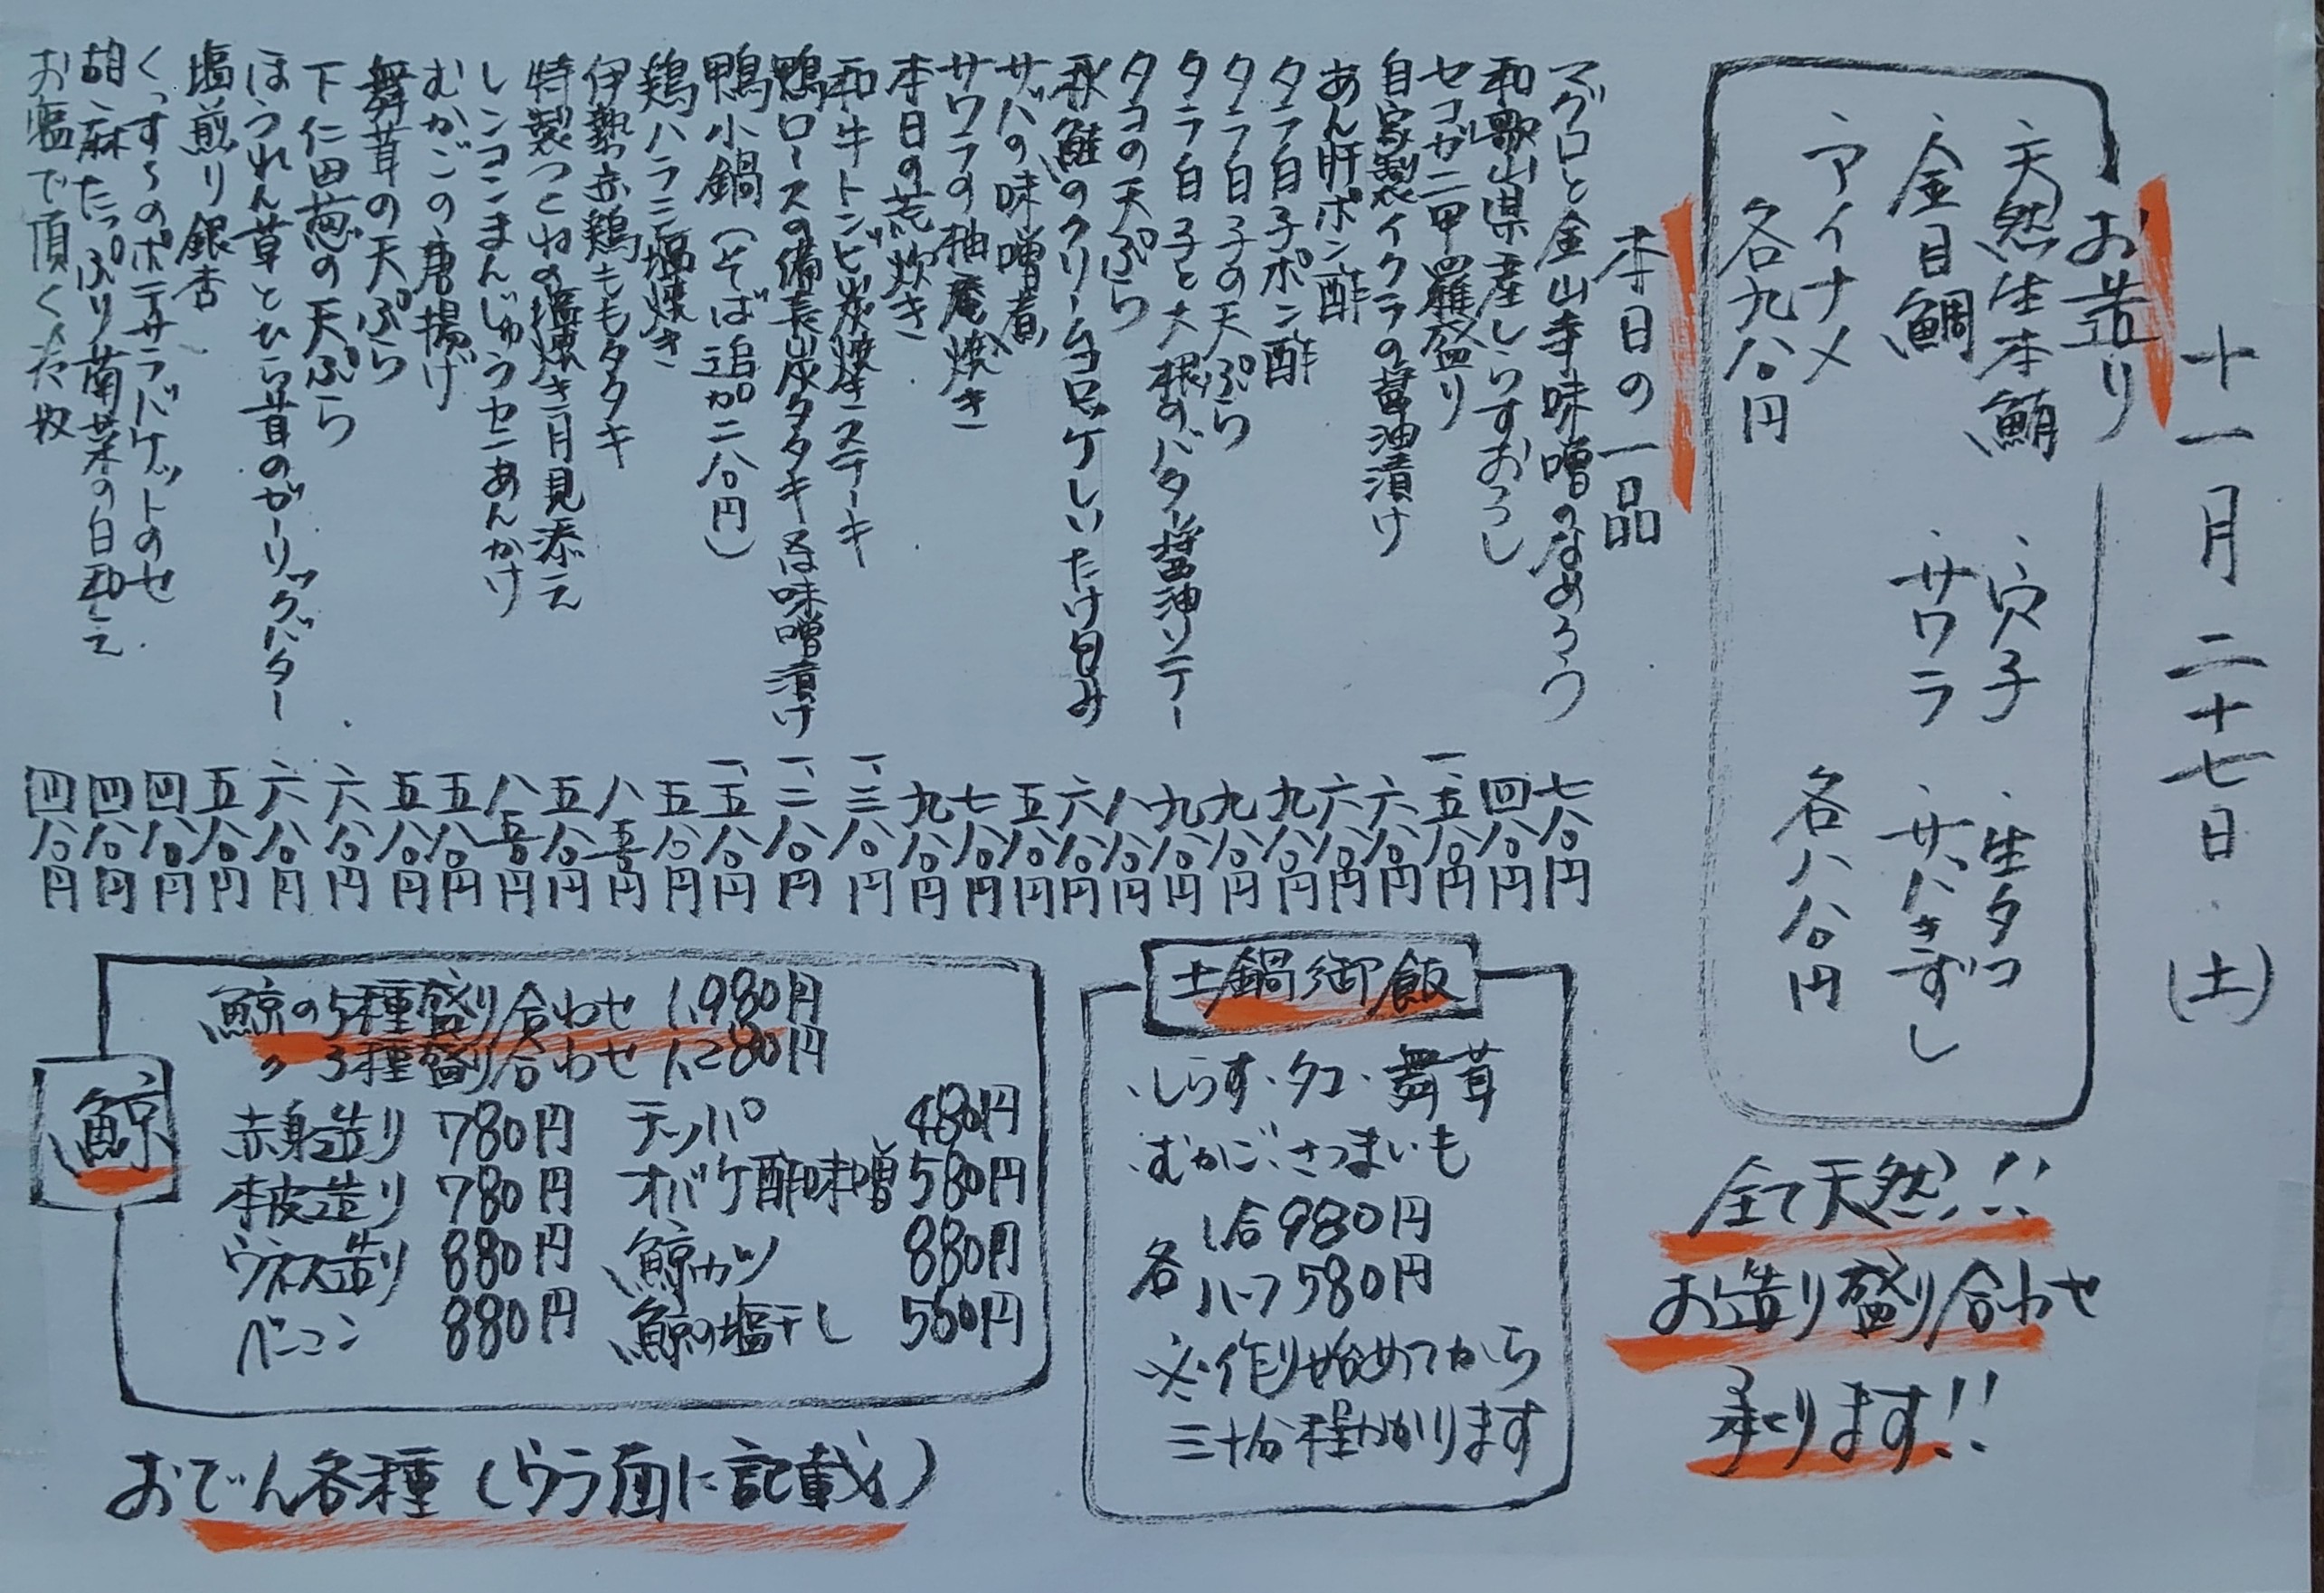 十一月二十七日(土)
お造り
・天然生本鮪 ・穴子 ・生タコ
・金目鯛 ・サワラ ・サバきずし
・アイナメ
各九八〇円 各八八〇円
全て天然!!
お造り盛り合わせ
承ります!!
本日の一品
マグロと金山寺味噌のなめろう 七八〇円
和歌山県産しらすおろし 四八〇円
セコガニ甲羅盛り 一、五八〇円
自家製イクラの醤油漬け 六八〇円
あん肝ポン酢 六八〇円
タラ白子ポン酢 九八〇円
タラ白子の天ぷら 九八〇円
タラ白子と大根のバター醤油ソテー 九八〇円
タコの天ぷら 八八〇円
秋鮭のクリームコロッケしいたけ包み 六八〇円
サバの味噌煮 五八〇円
サワラの柚庵焼き 七八〇円
本日の荒炊き 九八〇円
和牛トンビ炭焼きステーキ 一、三八〇円
鴨ロースの備長炭タタキ又は味噌漬け 一、二八〇円
鴨小鍋(そば追加二八〇円) 一、五八〇円
鶏ハラミ塩焼き 五八〇円
伊勢赤鶏ももタタキ 八五〇円
特製つくねの塩焼き月見添え 五八〇円
レンコンまんじゅうカニあんかけ 八五〇円
むかごの唐揚げ 五八〇円
舞茸の天ぷら 五八〇円
下仁田葱の天ぷら 六八〇円
ほうれん草とひら茸のガーリックバター 六八〇円
塩煎り銀杏 五八〇円
ポテサラバケットのせ 四八〇円
胡麻たっぷり菊菜の白和え 四八〇円
お塩で頂く冷奴 四八〇円
土鍋御飯
・しらす・タコ・舞茸
・むかご・さつまいも
各 1合 980円
ハーフ 580円
※作り始めてから
三十分程かかります
鯨
鯨の5種盛り合わせ 1,980円
〃 3種盛り合わせ 1,280円
赤身造り 780円 テッパ 480円
本皮造り 780円 オバケ酢味噌 580円
ウネス造り 880円 鯨カツ 880円
ベーコン 880円 鯨の塩干し 550円
おでん各種(ウラ面に記載)